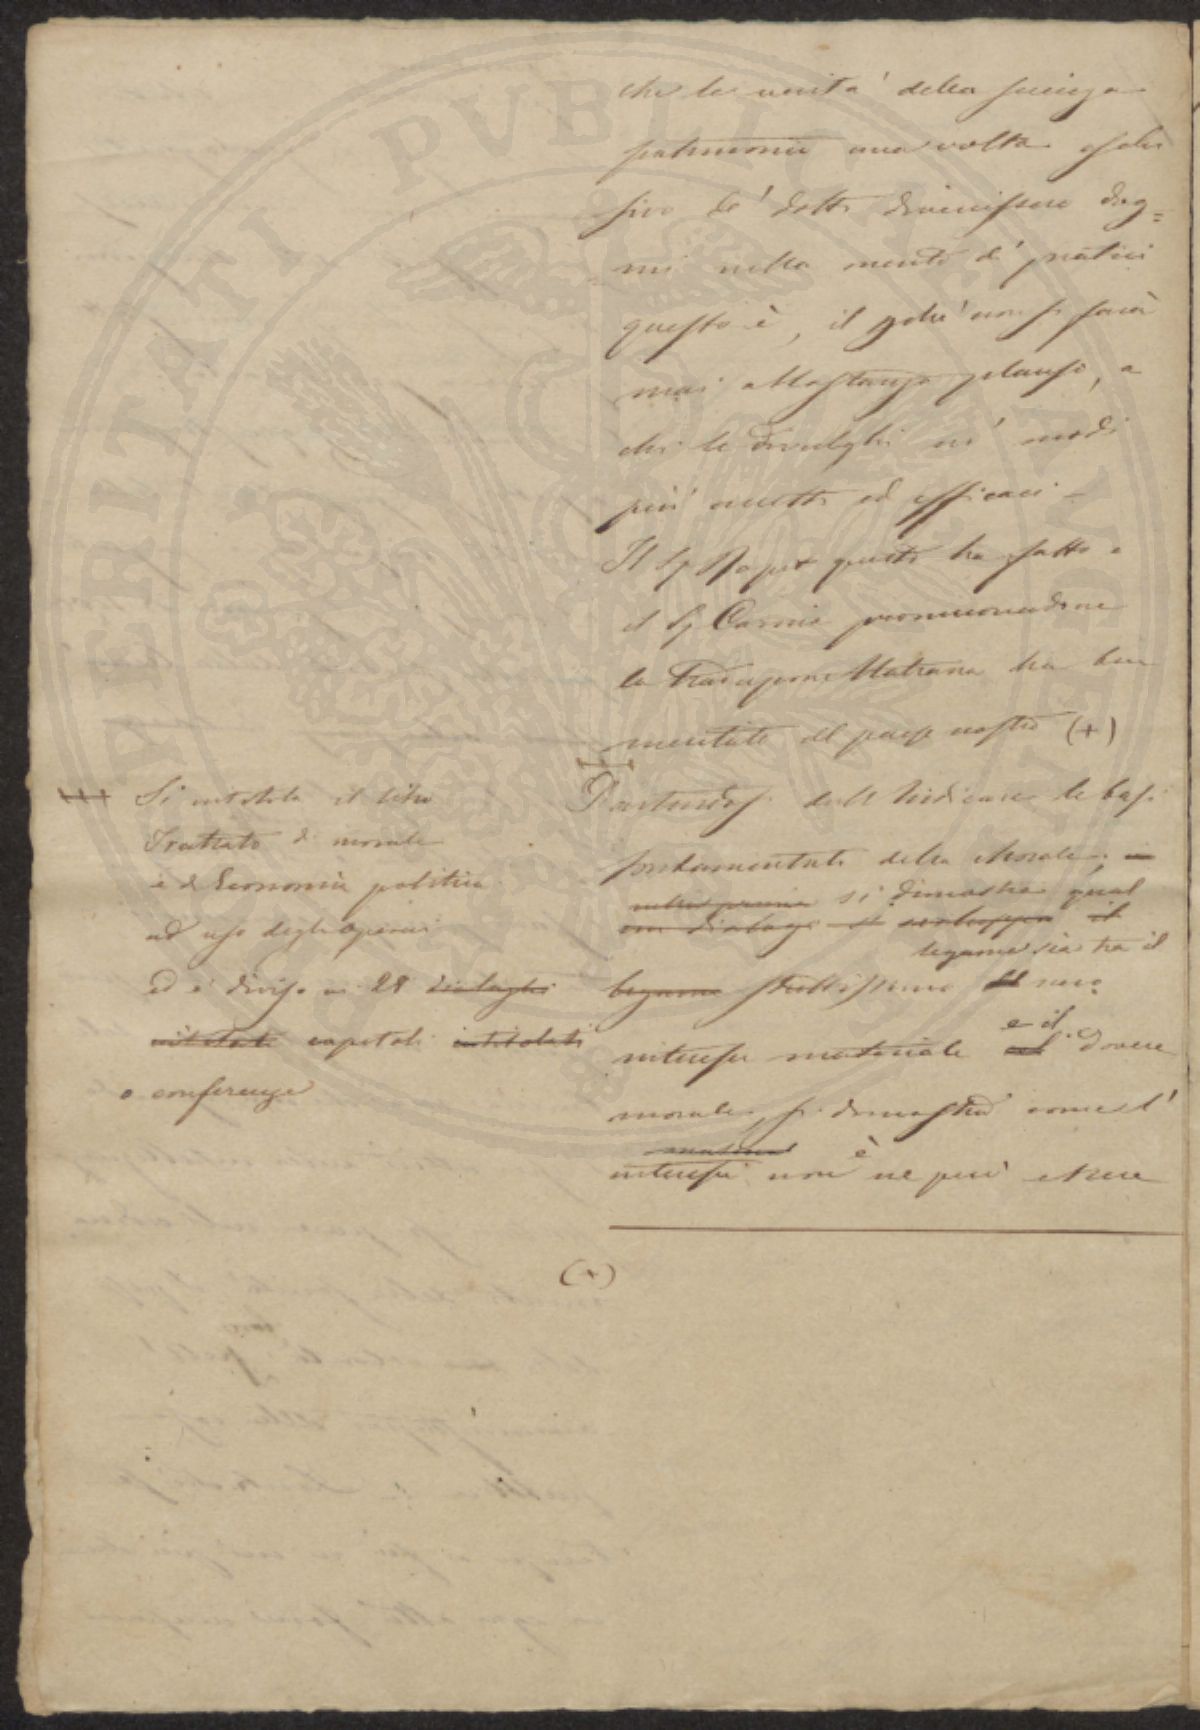 che le verità della scienza
patrimonio una volta esclu
sivo de' dotti divenissero dog=
mi nella mente de' pratici
questo è, il perché non si farà
mai abbastanza plauso, a
chi le divulghi ne' modi
più accetti ed efficaci –
Il Sig Rapet questo ha fatto e
il Sig promuovendone
la traduzione Italiana ha ben
meritato del paese nostro (+)
Si intitola il libro
Trattato di morale
e di Economia politica
ad uso degli operai
ed è diviso in 28 dialoghi
intitolati capitoli intitolati
o conferenze
Partendosi dall'indicare le basi
fondamentali della Morale, in
si dimostra qual
dialogo si sviluppa il
legame sia tra il
legame strettissimo il vero
e il
interesse materiale al dovere
morale, si dimostra come l'
è
interesse non ne può essere
(+)
PERITATI PVBLICAE AVGENDAE